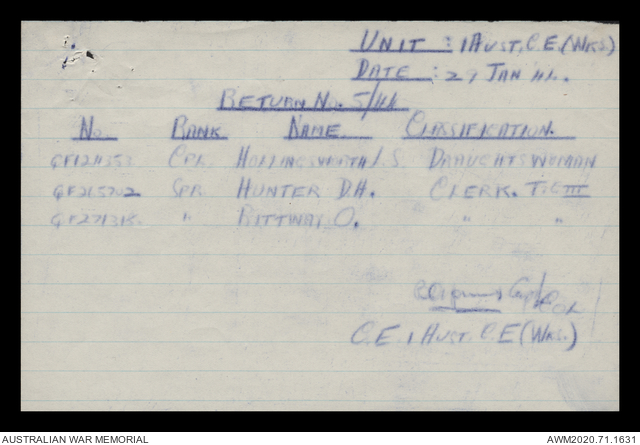 UNIT : 1 AUST. C.E. (WKS)
DATE : 29 JAN 44.
RETURN No. 5/44
No. RANK NAME CLASSIFICATION.
CPL. HOLLINGSWORTH J.S DRAUGHTSWOMAN
QF265702 SPR. HUNTER D.H. CLERK. T.G III
QF271318. " O. " "
C.E. 1 AUST. C.E (WKS.)
AUSTRALIAN WAR MEMORIAL
AWM2020.71.1631